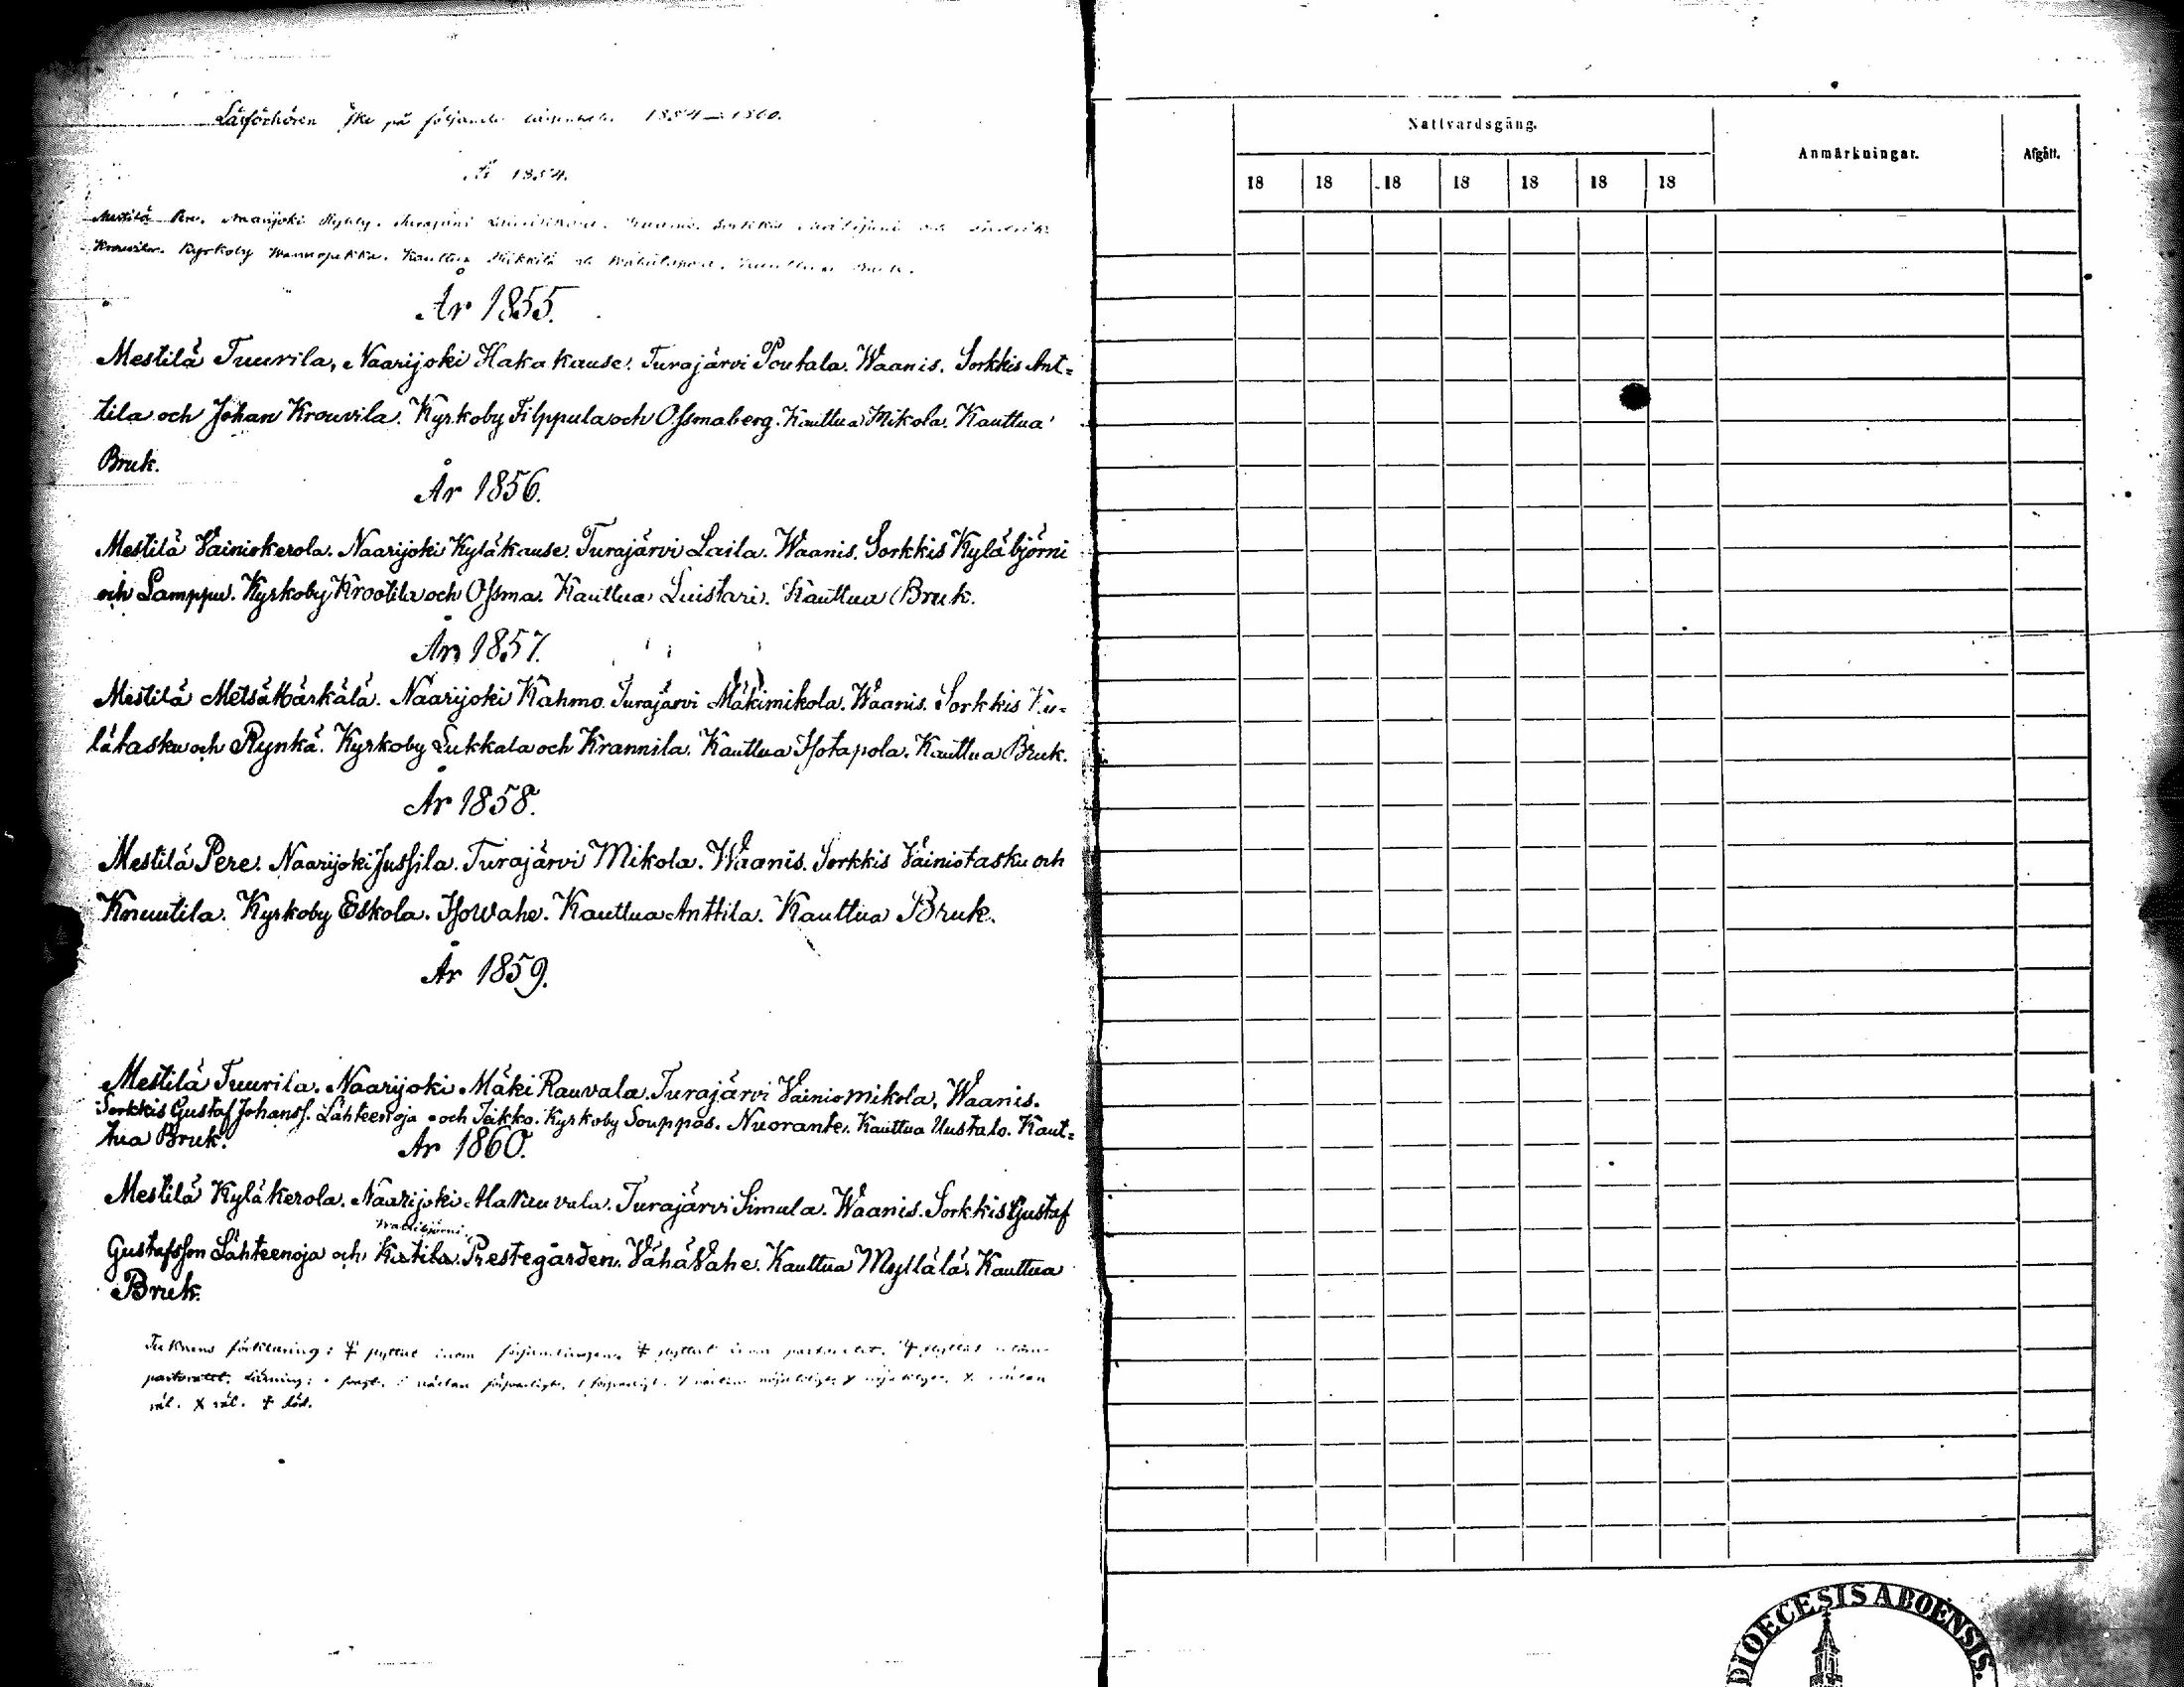 Läsförhören ske på följande 1854–1860.
År 1854.
Mestilä Pere. Naarijoki Turajärvi Sorkkis
Krouvila. Kyrkoby Kauttua
År 1855.
Mestilä Tuurila, Naarijoki Hakakause. Turajärvi Poutala. Waanis. Sorkkis Ant=
tila och Johan Krouvila. Kyrkoby Filppula och Ossmaberg. Kauttua Mikola. Kauttua
Bruk.
År 1856.
Mestilä Vainiokerola. Naarijoki Kyläkause. Turajärvi Laila. Waanis. Sorkkis Kyläbjörni
och Lamppu. Kyrkoby Krootila och Ossma. Kauttua Luistari. Kauttua Bruk.
År 1857.
Mestilä Metsä Härkälä. Naarijoki Kahmo. Turajärvi Mäkimikola. Waanis. Sorkkis Ky=
lätasku och Rynkä. Kyrkoby Lukkala och Krannila. Kauttua Isotapola. Kauttua Bruk.
År 1858.
Mestilä Pere. Naarijoki Jussila. Turajärvi Mikola. Waanis. Sorkkis Vainiotasku och
Knuutila. Kyrkoby Eskola. IsoVahe. Kauttua Anttila. Kauttua Bruk.
År 1859.
Mestilä Tuurila. Naarijoki Mäki Rauvala. Turajärvi Vainiomikola, Waanis.
Sorkkis Gustaf Johanss. Lähteenoja och Teikko. Kyrkoby Souppas. Nuorante. Kauttua Uustalo. Kaut=
tua Bruk.
År 1860.
Mestilä Kyläkerola. Naarijoki Turajärvi Simula. Waanis. Sorkkis Gustaf
Gustafsson Lähteenoja och Prestegården. VähäVahe. Kauttua Myllälä. Kauttua
Bruk.
förklaring: flyttat inom församlingen. flyttat inom pastoratet. flyttat utom
pastoratet. Läsning: svagt. nästan försvarligt. försvarligt.
väl. väl. död.
Nattvardsgång.
Anmärkningar.
Afgått.
18 18 18 18 18 18 18
DIOECESIS ABOENSIS.